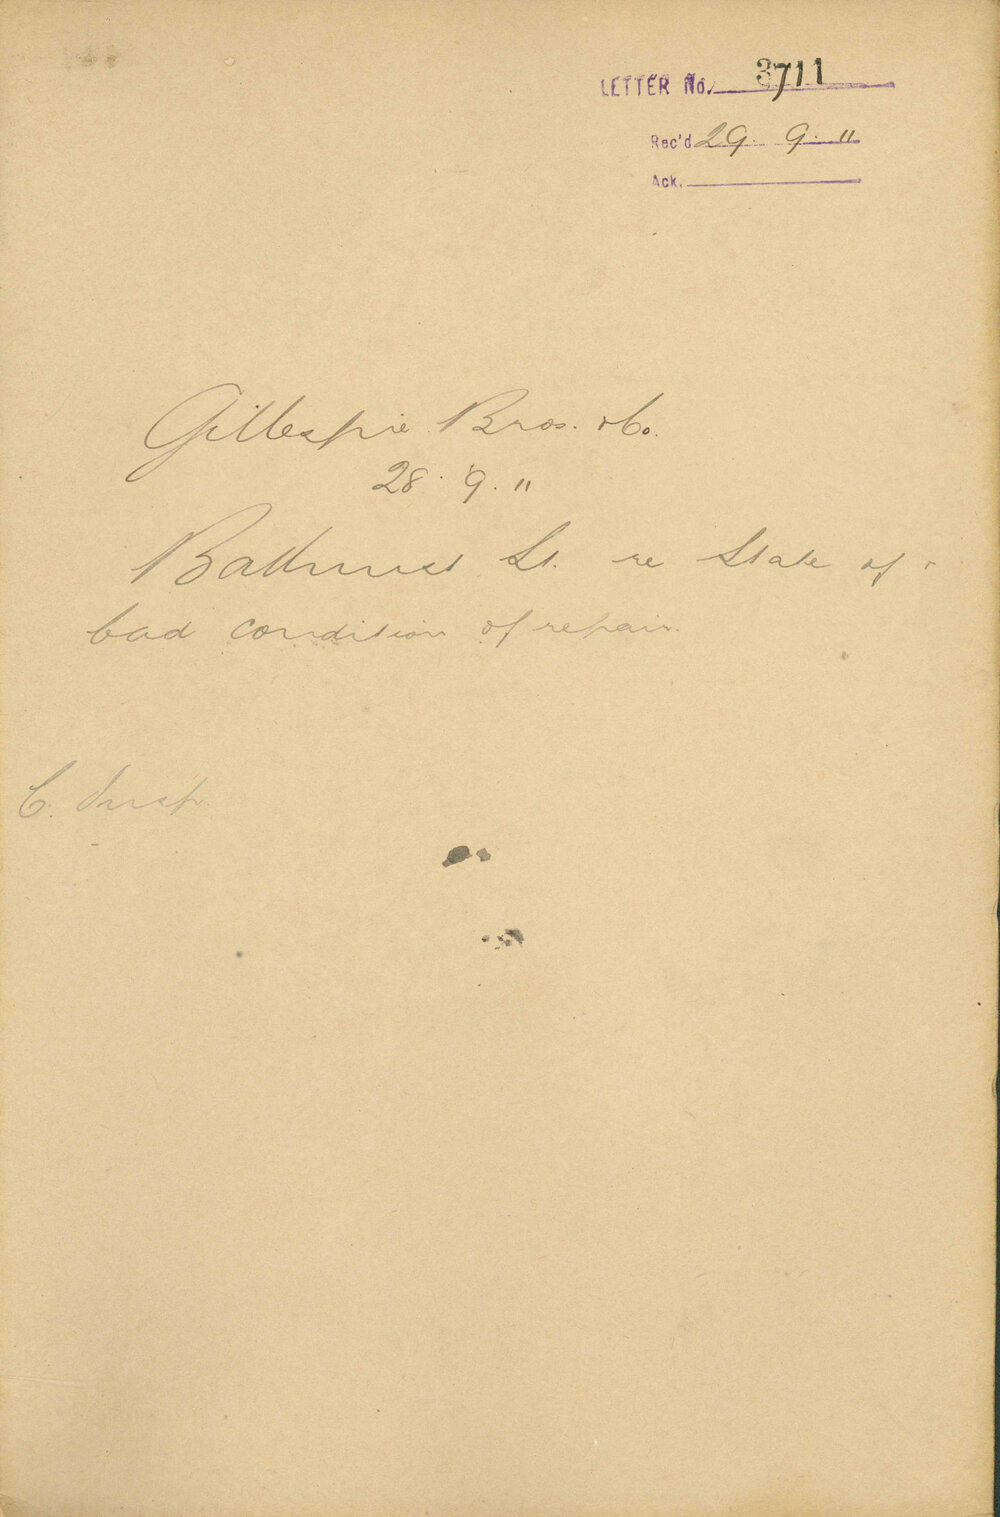 LETTER No. 3711
Rec'd 29. 9. 11
Ack.
Gillespie Bros. & Co.
28. 9. 11
Bathurst St. re State of &
bad condition of repair.
C. Insp.